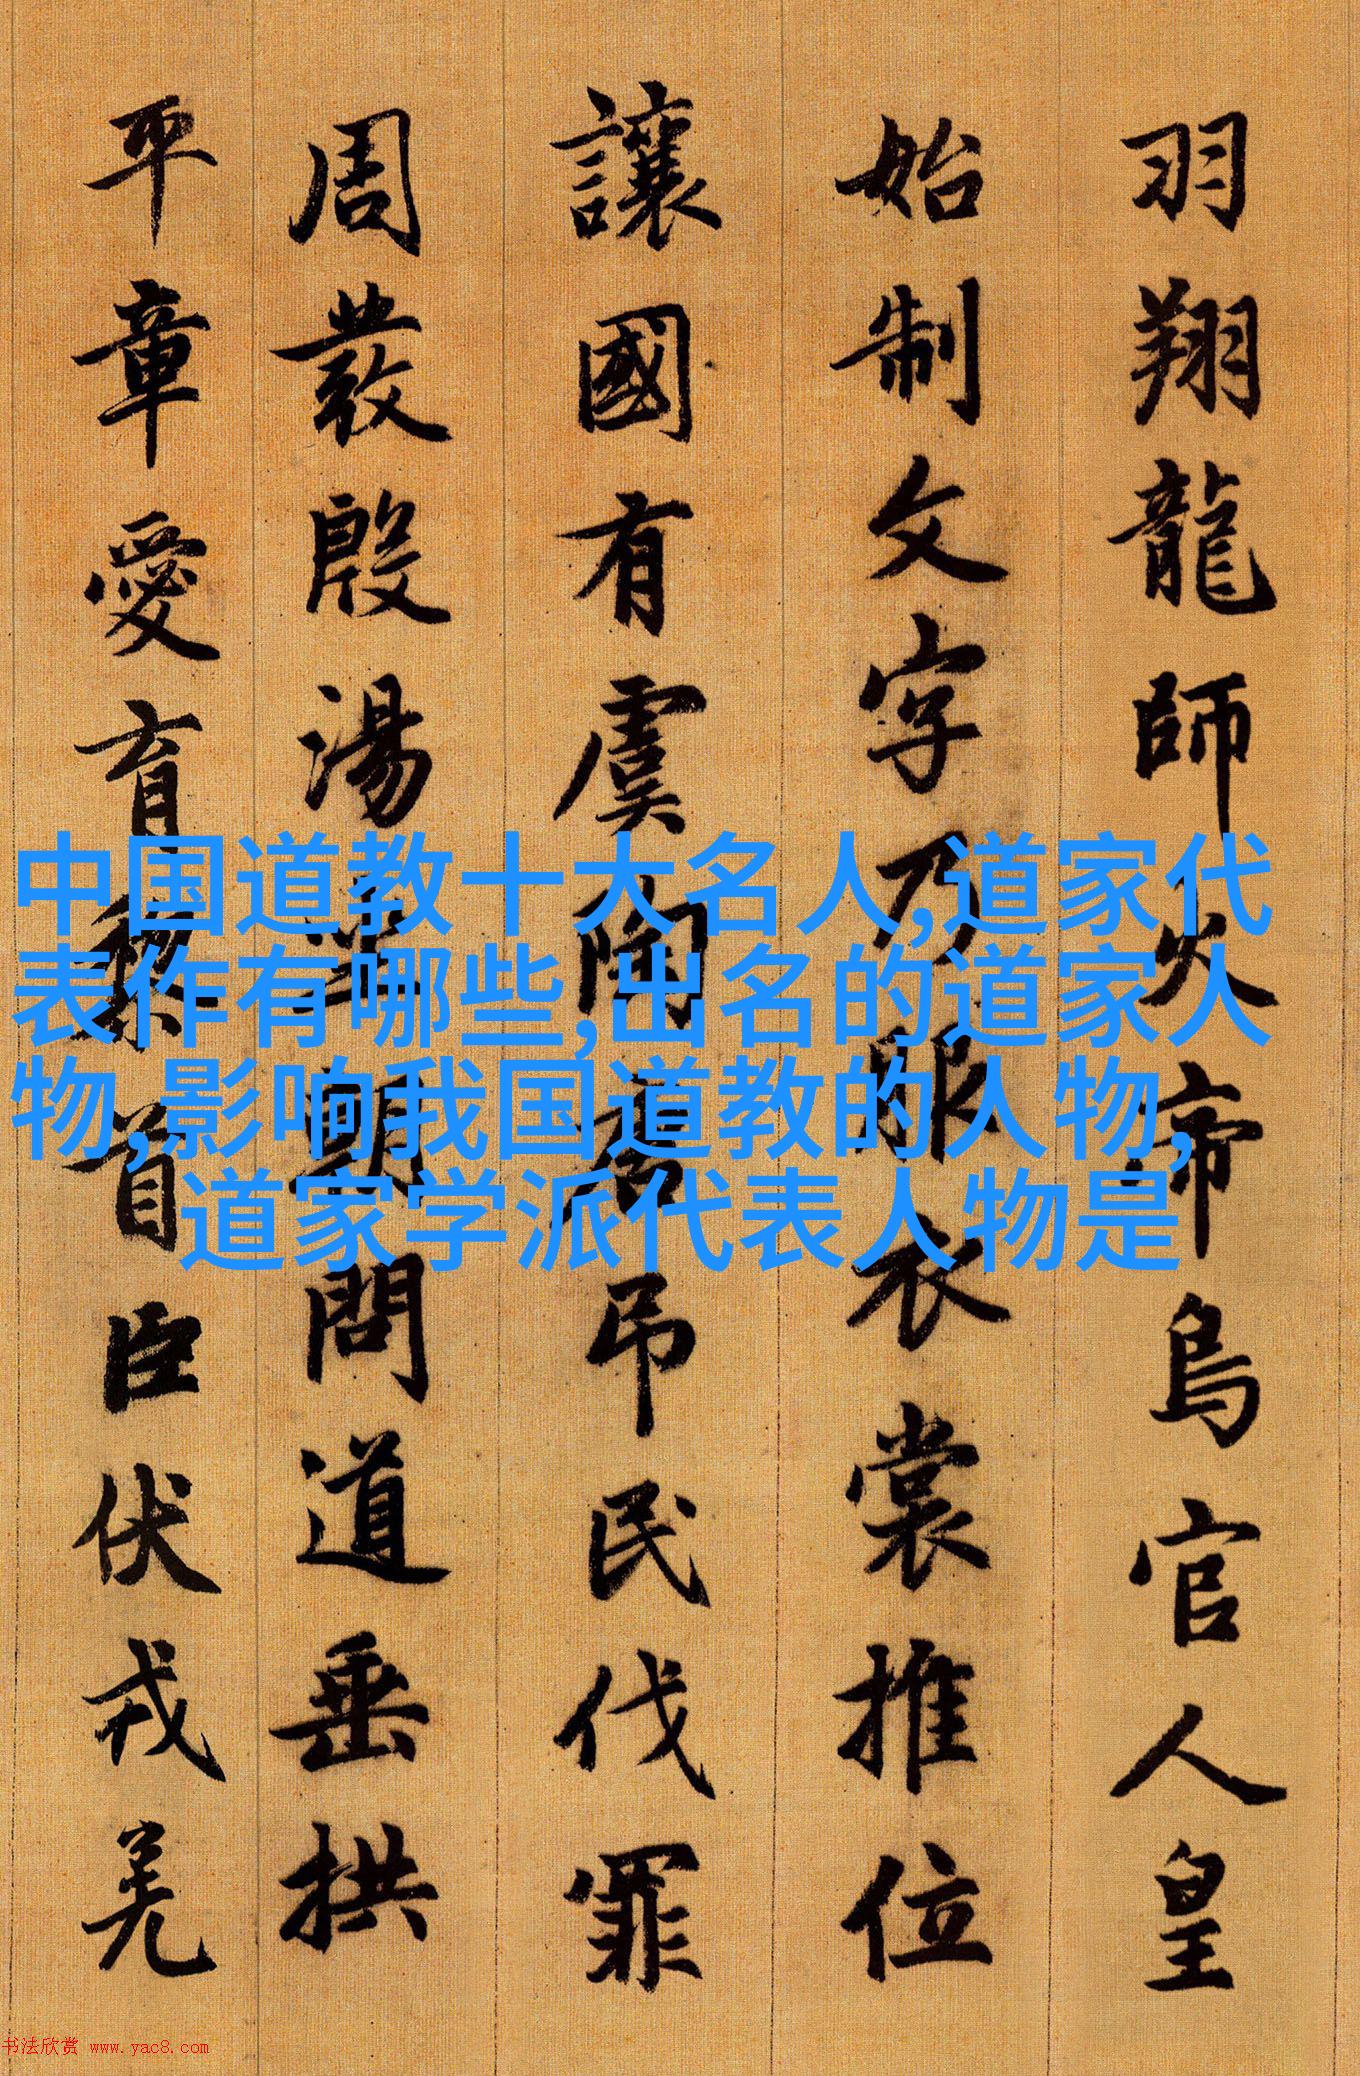 羽翔龍師火帝鳥官人皇
始制文字乃服衣裳推位
讓國有虞陶唐吊民伐罪
周發殷湯坐朝問道垂拱
平章愛育黎首臣伏戎羌
中国道教十大名人,道家代
表作有哪些,出名的道家人
物,影响我国道教的人物,
道家学派代表人物是
书法欣赏 www.yac8.com